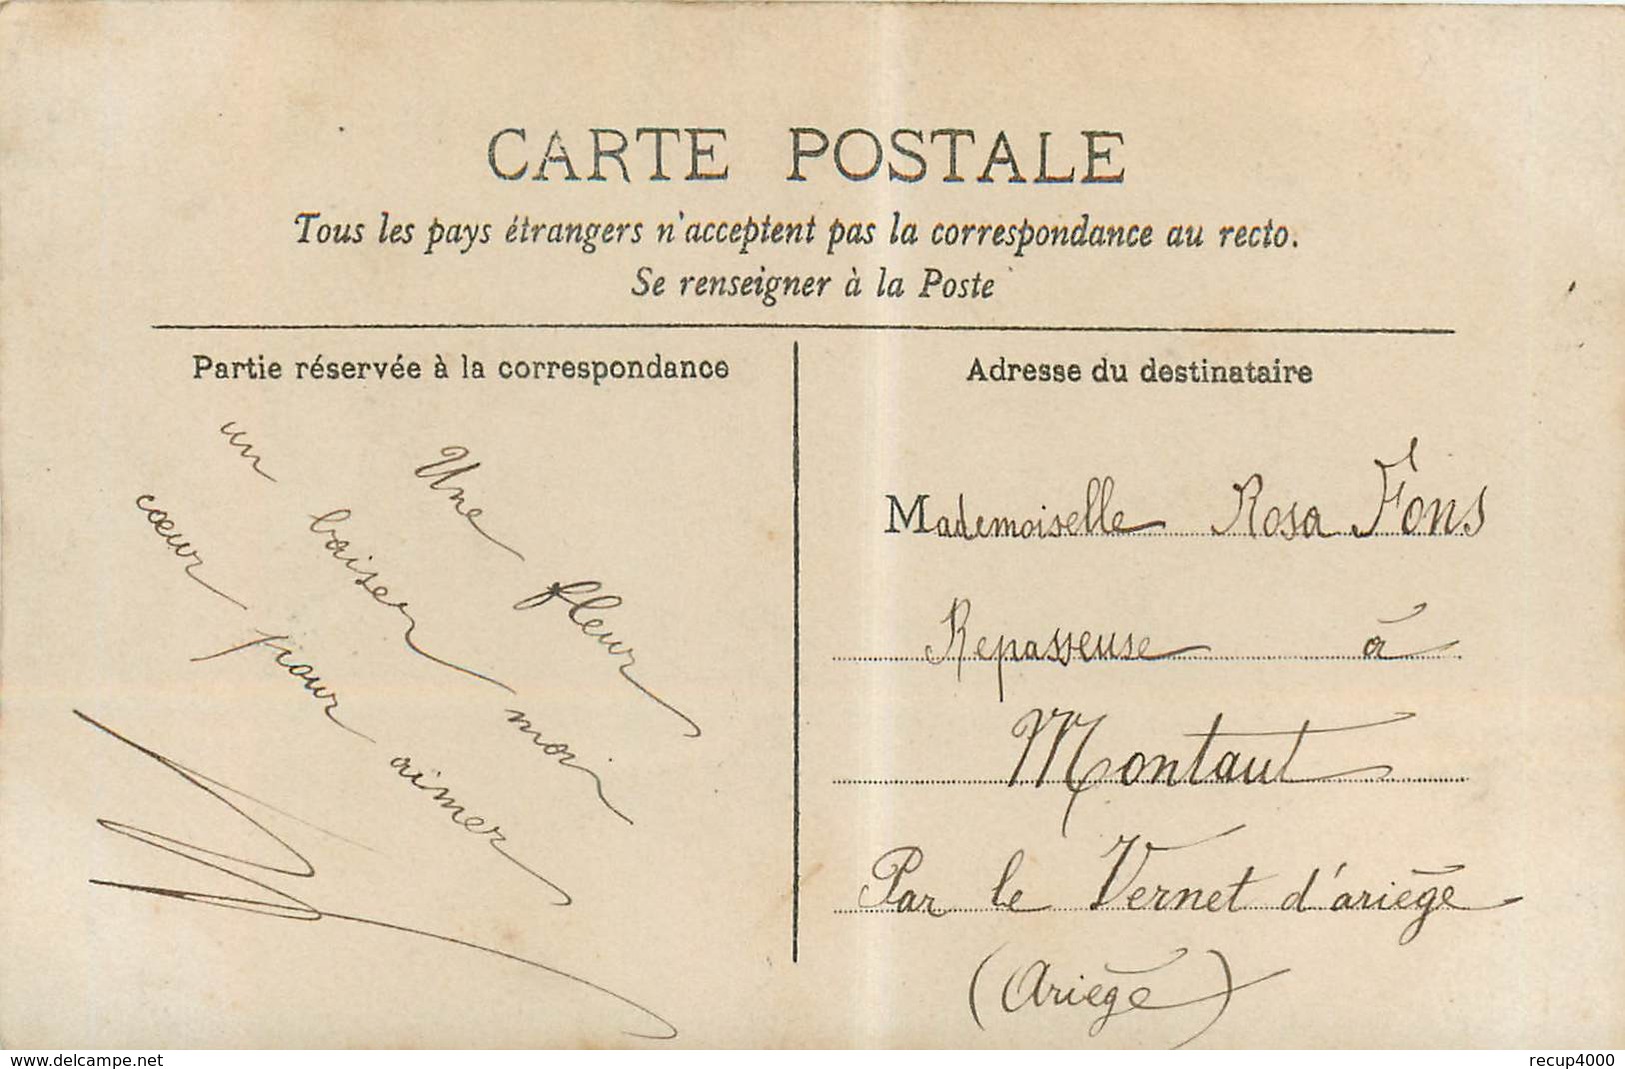 CARTE POSTALE
Tous les pays étrangers n'acceptent pas la correspondance au recto.
Se renseigner à la Poste
Partie réservée à la correspondance
Une fleur
un baiser mon
cœur pour aimer
Adresse du destinataire
Mademoiselle Rosa Fons
Repasseuse à
Montaut
Par le Vernet d'ariège
(Ariège)
www.delcampe.net
recup4000